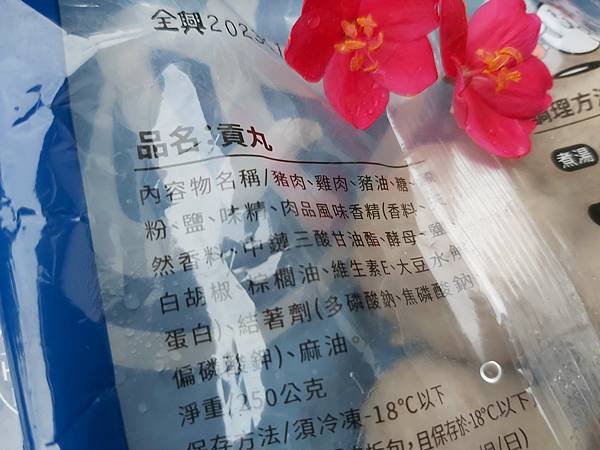 全興2023.1
品名:貢丸
調理方法
煮湯
內容物名稱/豬肉、雞肉、豬油、糖、
粉、鹽、味精、肉品風味香精(香料、天
然香料、中鏈三酸甘油酯、酵母、鹽、
白胡椒、棕櫚油、維生素E、大豆水解
蛋白)、結著劑(多磷酸鈉、焦磷酸鈉、
偏磷酸鉀)、麻油。
淨重/250公克
保存方法/須冷凍-18℃以下
拆包,且保存於-18℃以下
/日)